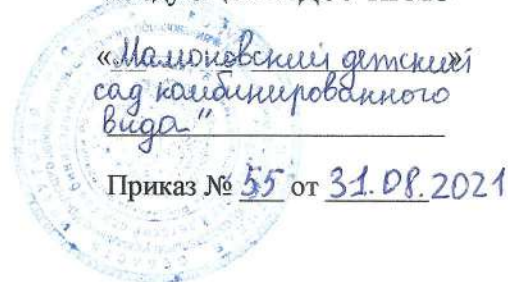 «Мамоновский детский»
сад комбинированного
вида"
Приказ № 55 от 31.08.2021